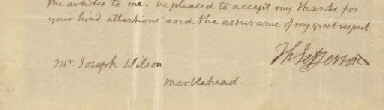 the articles to me. be pleased to accept my thanks for
your kind attentions and the assurance of my great respect
Th: Jefferson
Mr Joseph Wilson
Marblehead.